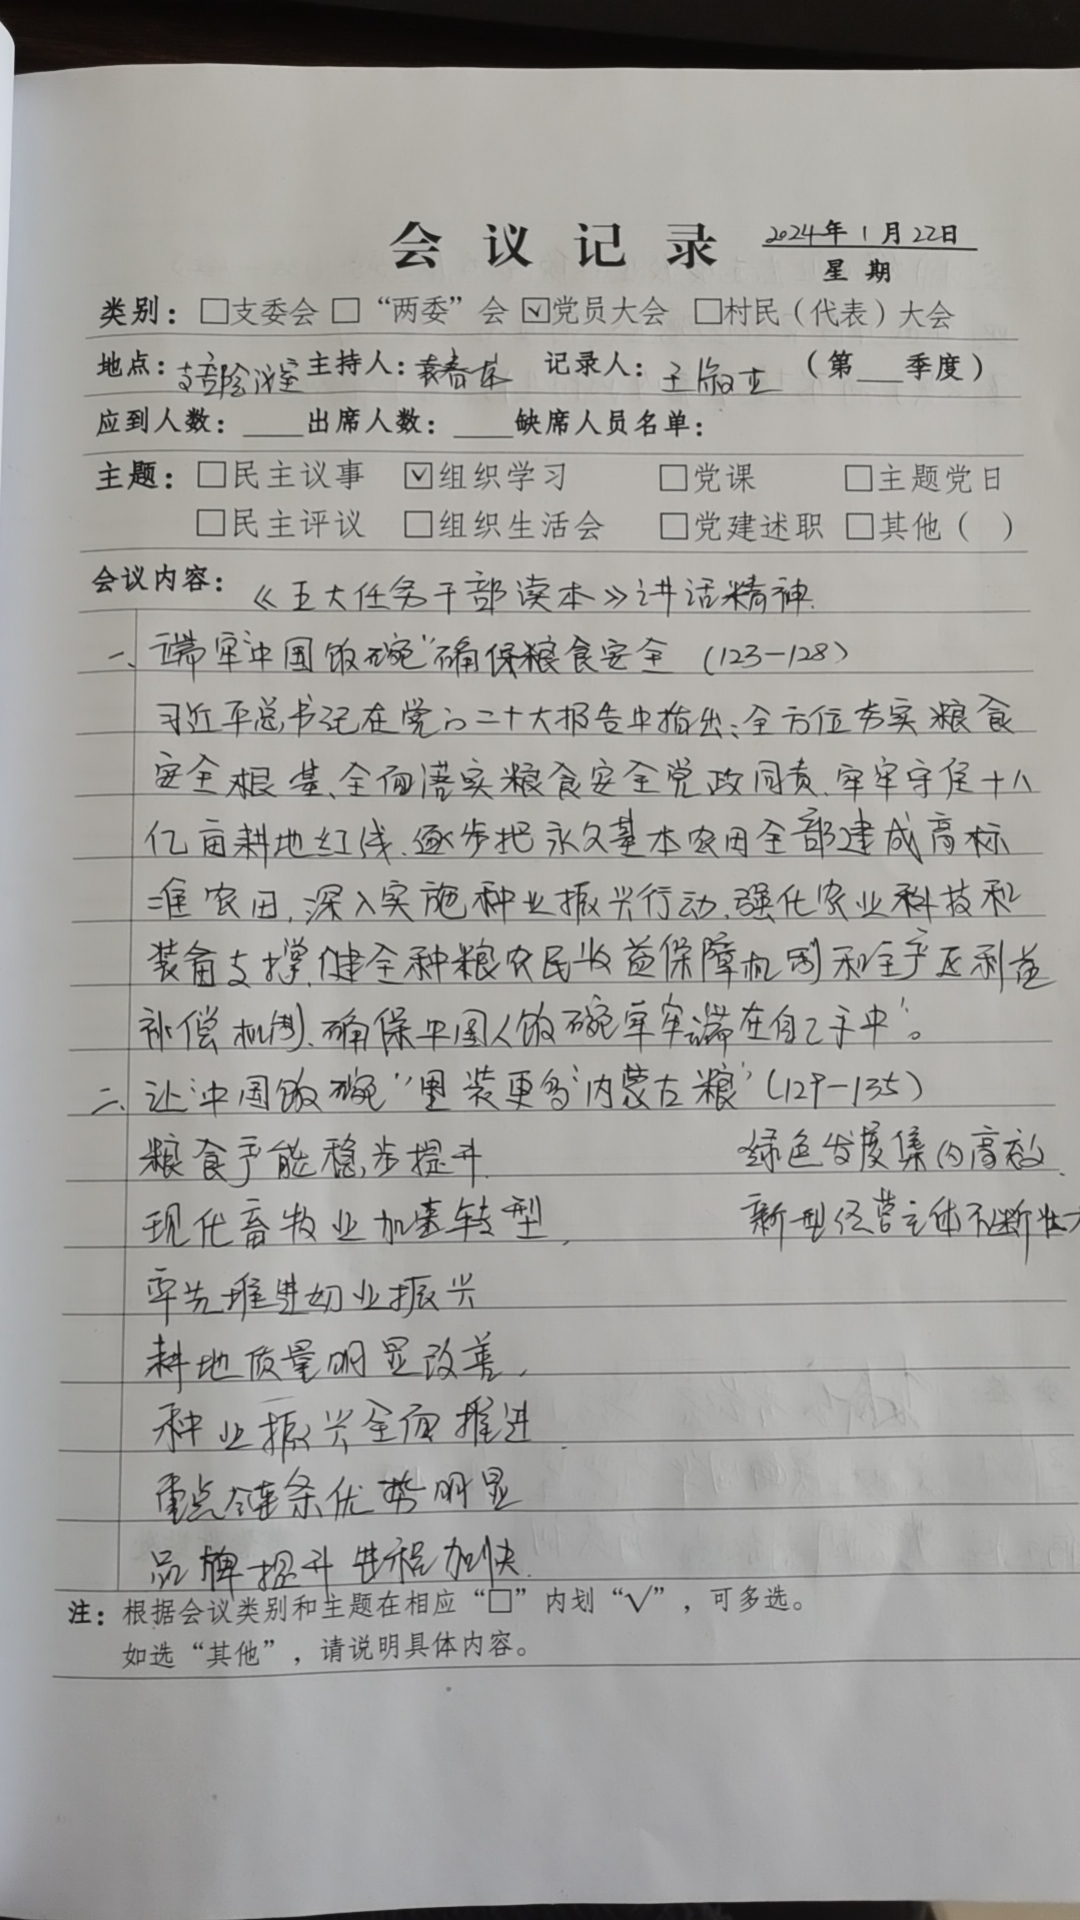 会议记录 2024年1月22日
星期
类别：□支委会 □“两委”会 ☑党员大会 □村民（代表）大会
地点：支部会议室 主持人：袁春 记录人：王 （第 季度）
应到人数： 出席人数： 缺席人员名单：
主题：□民主议事 ☑组织学习 □党课 □主题党日
□民主评议 □组织生活会 □党建述职 □其他（ ）
会议内容：《五大任务干部读本》讲话精神.
一、端牢“中国饭碗”确保粮食安全（123-128）
习近平总书记在党的二十大报告中指出：全方位夯实粮食
安全根基、全面落实粮食安全党政同责、牢牢守住十八
亿亩耕地红线、逐步把永久基本农田全部建成高标
准农田，深入实施种业振兴行动、强化农业科技和
装备支撑，健全种粮农民收益保障机制和主产区利益
补偿机制、确保中国人饭碗牢牢端在自己手中”。
二、让“中国饭碗”里装更多“内蒙古粮”（129-135）
粮食产能稳步提升. 绿色发展集约高效.
现化畜牧业加速转型， 新型经营主体不断壮大
率先推进奶业振兴
耕地质量明显改善，
种业振兴全面推进.
重点链条优势明显
品牌提升进程加快.
注：根据会议类别和主题在相应“□”内划“√”，可多选。
如选“其他”，请说明具体内容。